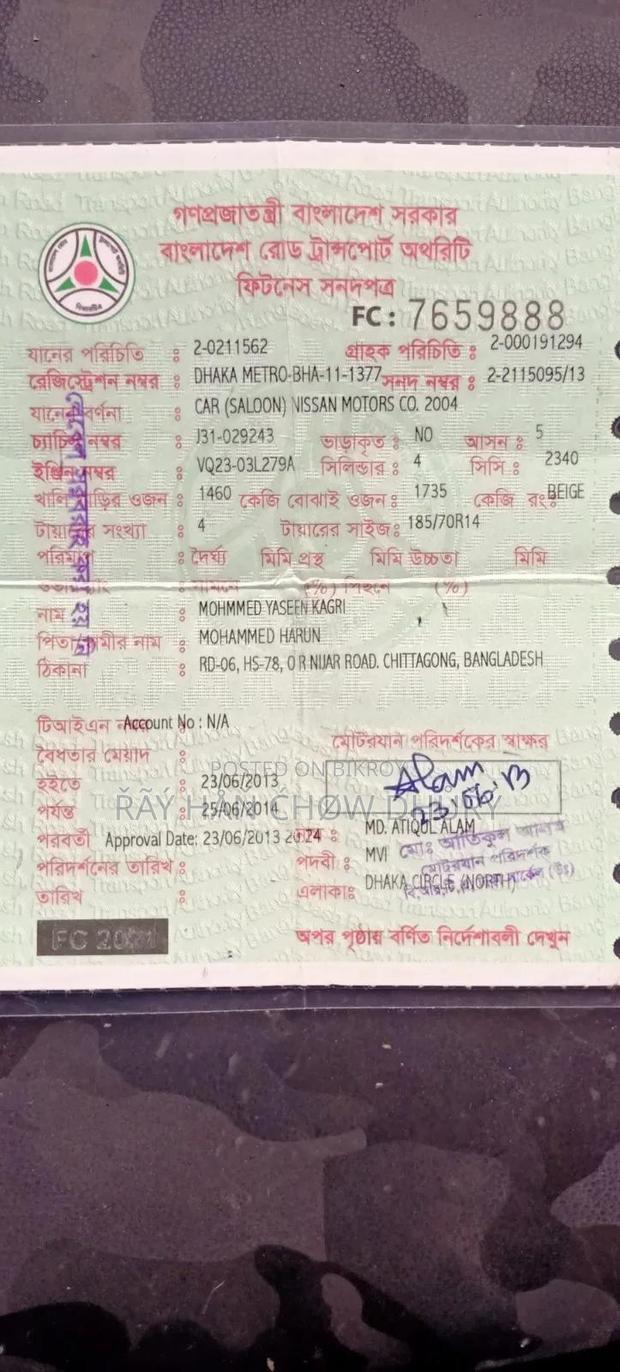 গণপ্রজাতন্ত্রী বাংলাদেশ সরকার
বাংলাদেশ রোড ট্রান্সপোর্ট অথরিটি
ফিটনেস সনদপত্র
FC : 7659888
যানের পরিচিতি : 2-0211562 গ্রাহক পরিচিতি : 2-000191294
রেজিস্ট্রেশন নম্বর : DHAKA METRO-BHA-11-1377 সনদ নম্বর : 2-2115095/13
যানের বর্ণনা : CAR (SALOON) NISSAN MOTORS CO. 2004
চ্যাচিস নম্বর : J31-029243 ভাড়াকৃত : NO আসন : 5
ইঞ্জিন নম্বর : VQ23-03L279A সিলিন্ডার : 4 সিসি : 2340
খালি গাড়ির ওজন : 1460 কেজি বোঝাই ওজন : 1735 কেজি রং : BEIGE
টায়ারের সংখ্যা : 4 টায়ারের সাইজ : 185/70R14
পরিমাপ : দৈর্ঘ্য মিমি প্রস্থ মিমি উচ্চতা মিমি
(%) পিছনে (%)
নাম : MOHMMED YASEEN KAGRI
পিতা/স্বামীর নাম : MOHAMMED HARUN
ঠিকানা : RD-06, HS-78, O R NIJAR ROAD. CHITTAGONG, BANGLADESH
টিআইএন Account No : N/A
বৈধতার মেয়াদ : মোটরযান পরিদর্শকের স্বাক্ষর
হইতে : 23/06/2013
POSTED ON BIKROY
Alam
23/06/13
পর্যন্ত : 25/06/2014
MD. ATIQUL ALAM
পরবর্তী Approval Date: 23/06/2013
পরিদর্শনের তারিখ : পদবী : MVI
মোটরযান পরিদর্শক
তারিখ : এলাকাঃ DHAKA CIRCLE (NORTH)
অপর পৃষ্ঠায় বর্ণিত নির্দেশাবলী দেখুন